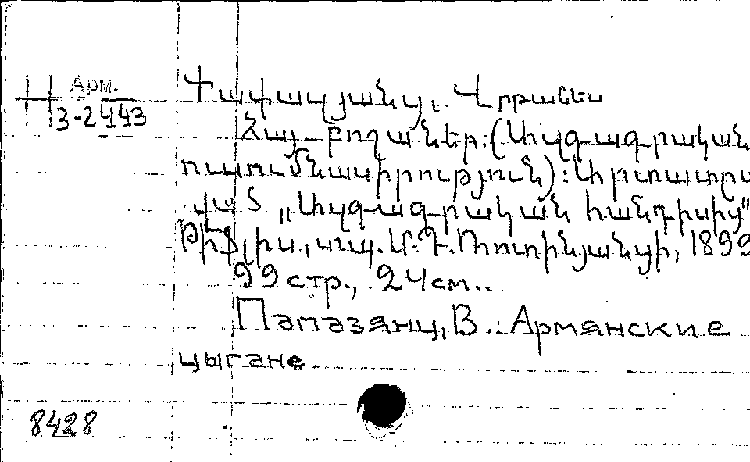 Арм.
3-2443
Փափազյանց, Վրթանես
Հայ-բոշաներ: (Ազգագրական
ուսումնասիրություն): Արտատպ
ված „Ազգագրական հանդիսից"
Թիֆլիս, տպ. Մ. Դ. Ռոտինյանցի, 1899
99 стр., 24 см..
Папазянц, В.. Армянские
цыгане
8428